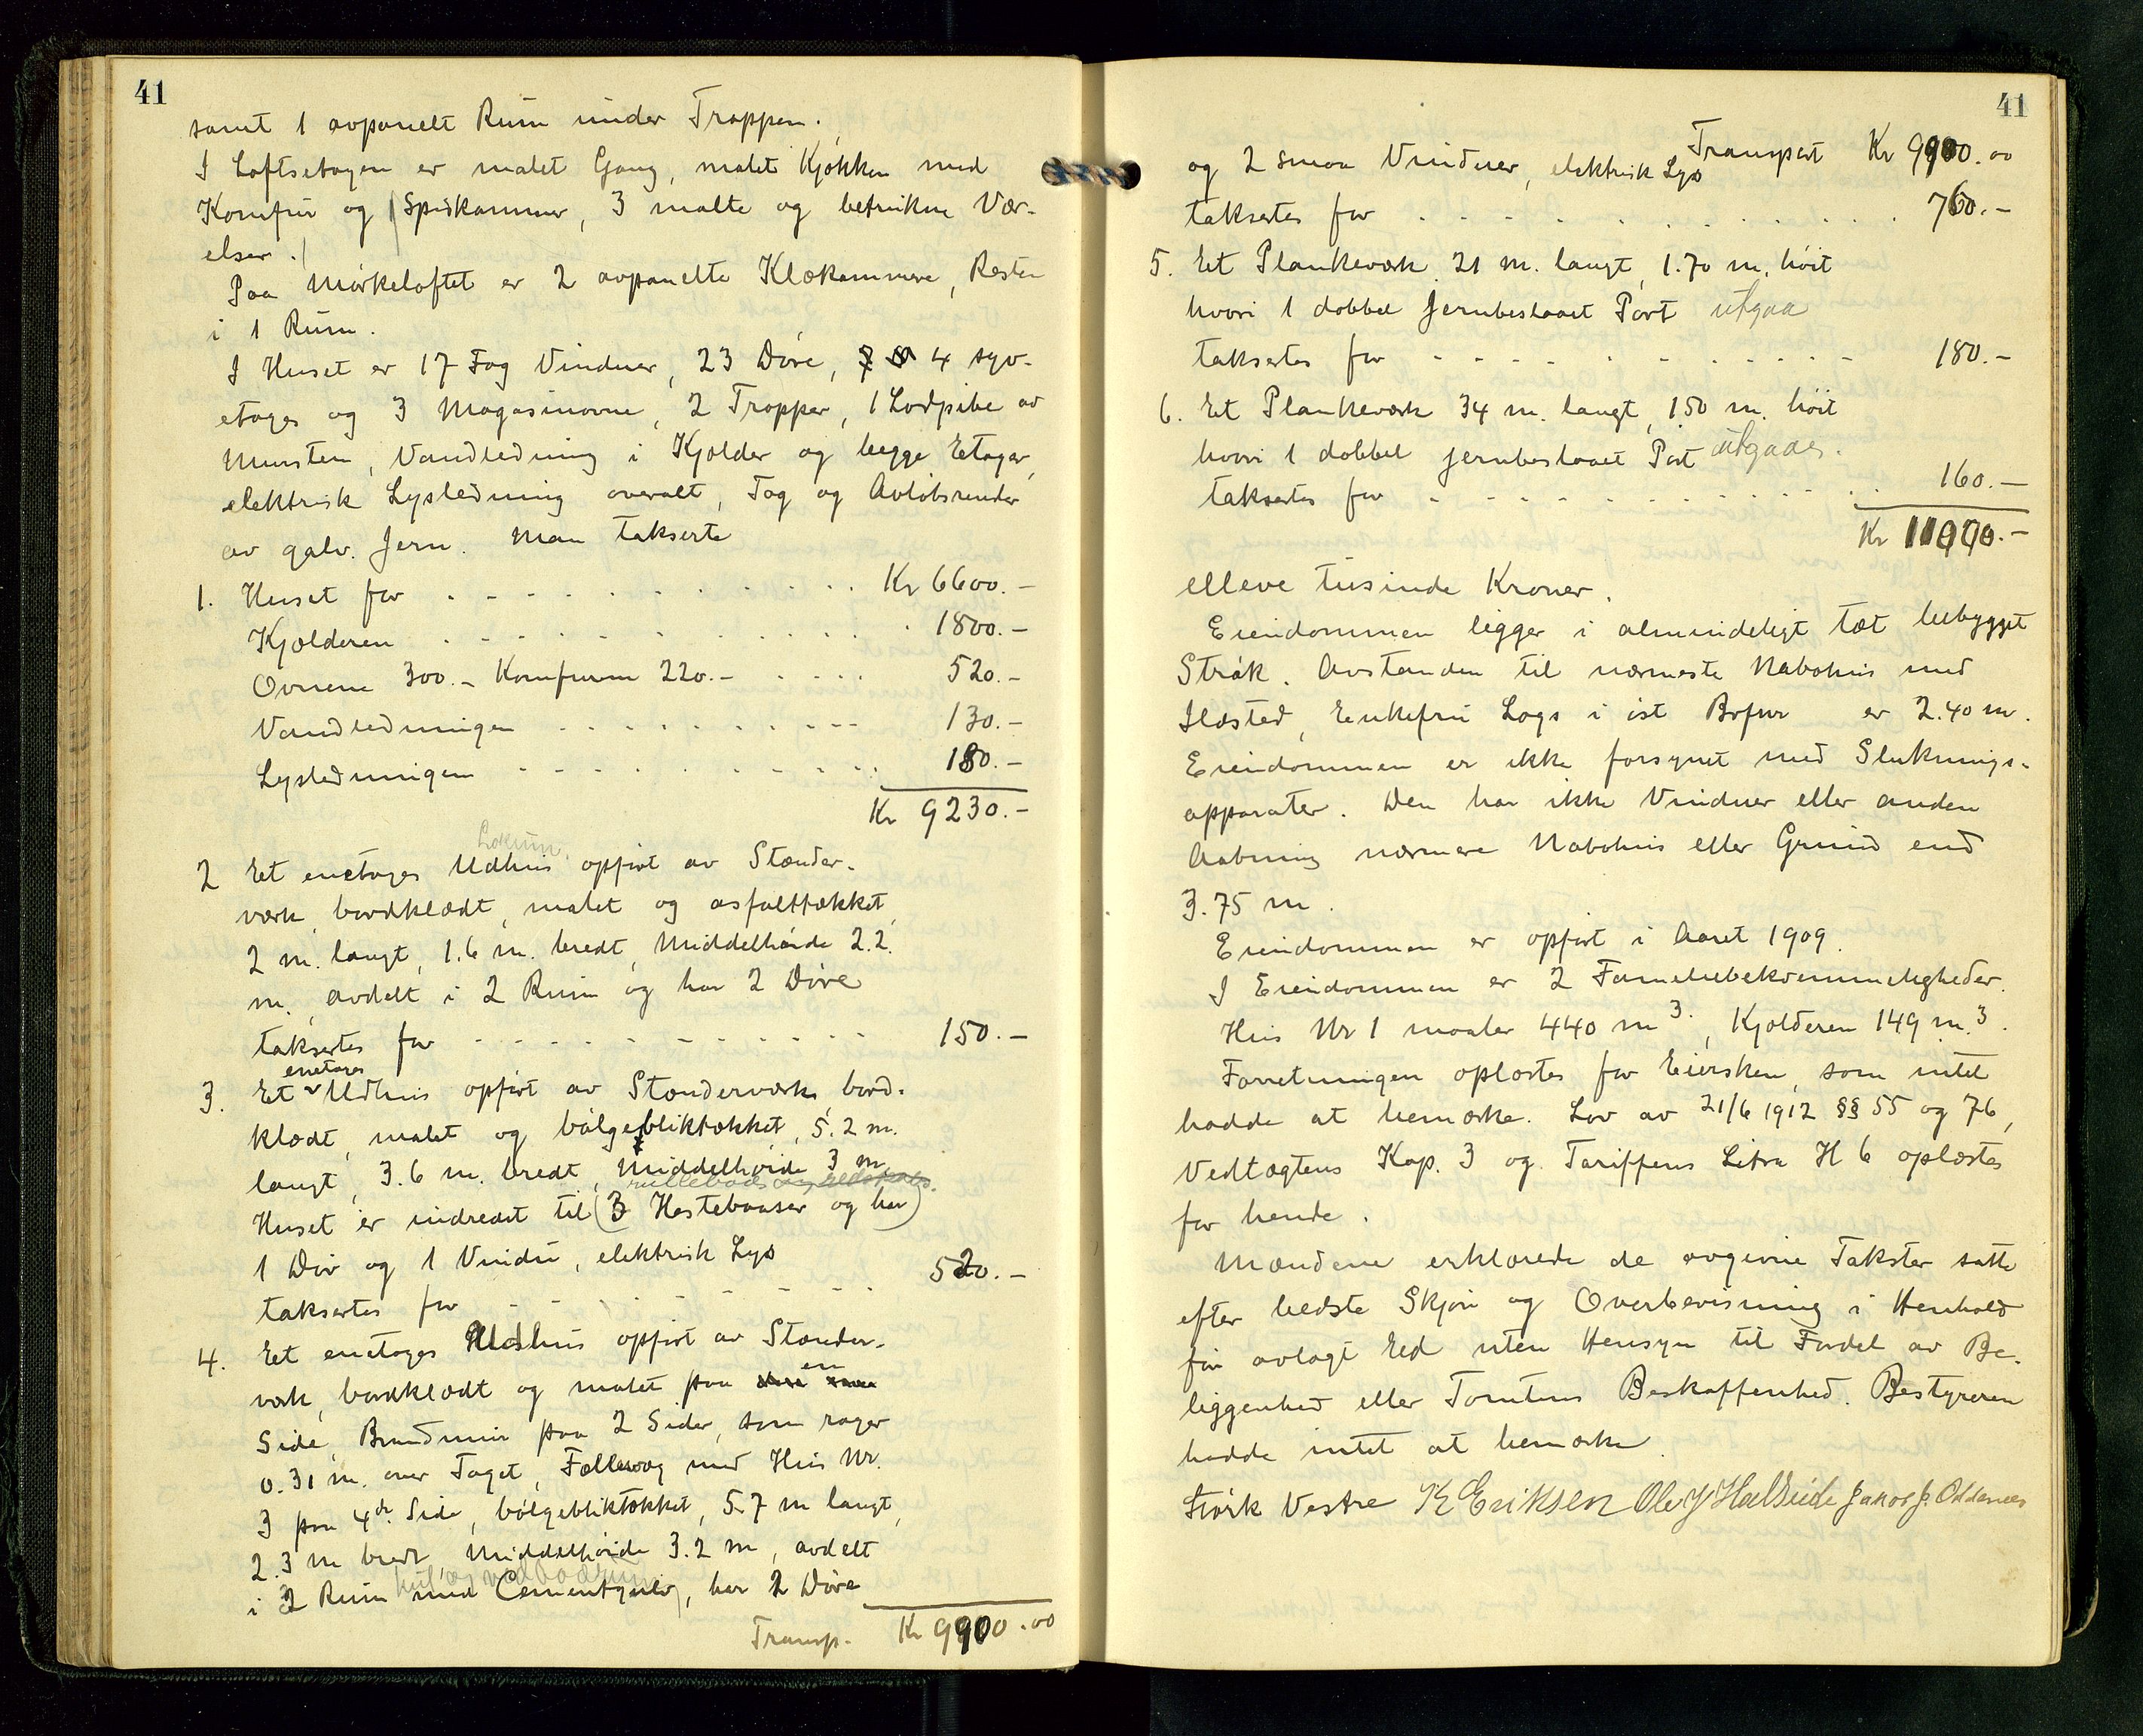 41
samt 1 avpanelt Rum under Trappen.
I Loftsetagen er malet Gang, malet Kjøkken med
Komfur og Spiskammer, 3 malte og betrukne Vær-
elser.
Paa Mørkeloftet er 2 avpanelte Klækammere, Resten
i 1 Rum.
I Huset er 17 Fag Vinduer, 23 Døre, 4 syv-
etages og 3 Magasinovne, 2 Trapper, 1 Lodpibe av
Mursten, Vandledning i Kjælder og begge Etager,
elektrisk Lysledning overalt, Tag og Avløbsrender
av galv. Jern. Man takserte
1. Huset for Kr 6600.-
Kjælderen 1800.-
Ovnene 300.- Komfuren 220.- 520.-
Vandledningen 130.-
Lysledningen 180.-
Kr 9230.-
Lokum
2 Et enetages Udhus opført av Stænder-
værk, bordklædt, malet og asfalttækket,
2 m. langt, 1.6 m. bredt, Middelhøide 2.2.
m., avdelt i 2 Rum og har 2 Døre
taksertes for 150.-
enetages
3. Et Udhus opført av Stænderværk, bord-
klædt, malet og bølgebliktækket, 5.2 m.
langt, 3.6 m. bredt, Middelhøide 3 m.
Huset er indredet til (3 Hestebaaser og har)
1 Dør og 1 Vindu, elektrisk Lys
taksertes for 520.-
4. Et enetages Udhus opført av Stænder-
værk, bordklædt og malet paa en
Side, Brandmur paa 2 Sider, som rager
0.31 m. over Taget, Fællesvæg med Hus Nr.
3 paa 4de Side, bølgebliktækket, 5.7 m langt,
2.3 m bredt, Middelhøide 3.2 m, avdelt
i 2 Rum med Cementgulv, har 2 Døre
Transp. Kr 9900.00
41
Transport Kr 9900.00
og 2 smaa Vinduer, elektrisk Lys
taksertes for 760.-
5. Et Plankeværk 21 m. langt, 1.70 m. høit
hvori 1 dobbel jernbeslaaet Port utgaa
taksertes for 180.-
6. Et Plankeværk 34 m. langt, 1.50 m. høit
hvori 1 dobbel jernbeslaaet Port utgaar.
taksertes for 160.-
Kr 11000.-
elleve tusinde Kroner.
Eiendommen ligger i almindeligt tæt bebygget
Strøk. Avstanden til nærmeste Nabohus med
Ildsted, Enkefru Logs i øst Bofur er 2.40 m.
Eiendommen er ikke forsynet med Sluknings-
apparater. Den har ikke Vinduer eller anden
Aabning nærmere Nabohus eller Grund end
3.75 m.
Eiendommen er opført i Aaret 1909.
I Eiendommen er 2 Familiebekvemmeligheder.
Hus Nr 1 maaler 440 m3., Kjælderen 149 m.3.
Forretningen oplæstes for Eiersken, som intet
hadde at bemærke. Lov av 21/6 1912 §§ 55 og 76,
Vedtægtens Kap. 3 og Tariffens Litra H 6 oplæstes
for hende.
Mændene erklærede de avgivne Takster satte
efter bedste Skjøn og Overbevisning i Henhold
før avlagt Ed uten Hensyn til Fordel av Be-
liggenhed eller Tomtens Beskaffenhed. Bestyreren
hadde intet at bemærke.
Størk Vestre K Eriksen Ole J Halseide Jakob J. Oddenes